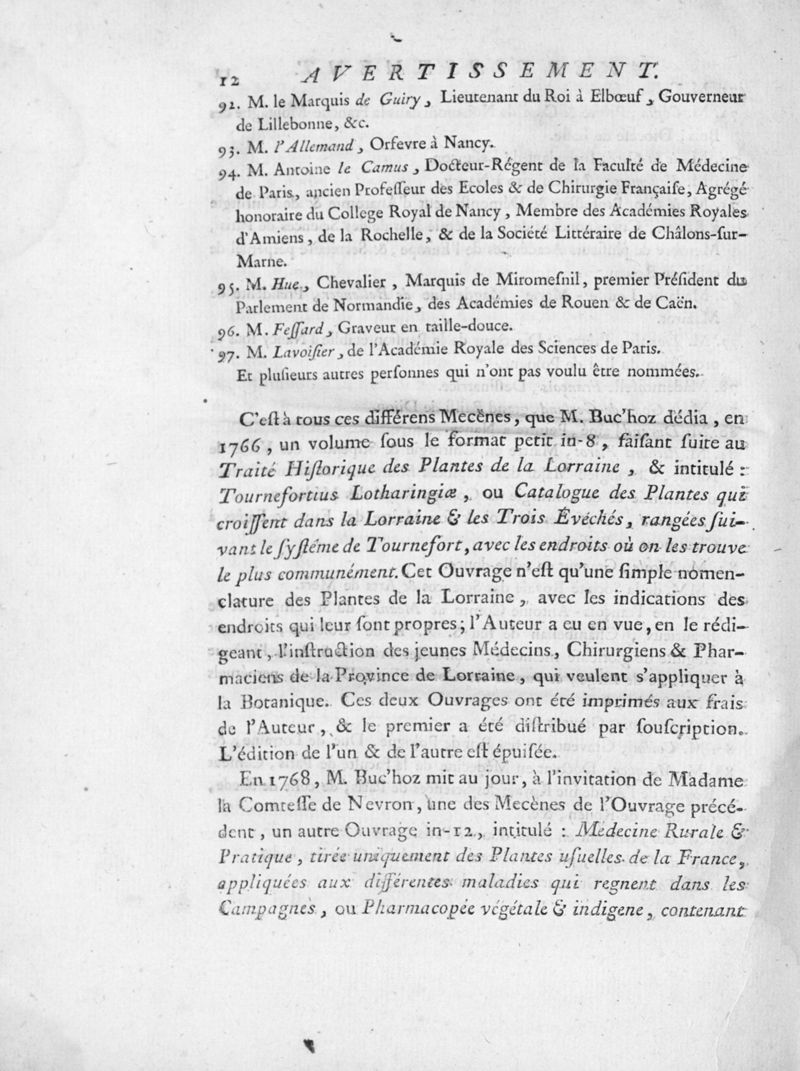 12 AVERTISSEMENT.
92. M. le Marquis de Guiry, Lieutenant du Roi à Elbœuf, Gouverneur
de Lillebonne, &c.
93. M. l'Allemand, Orfevre à Nancy.
94. M. Antoine le Camus, Docteur-Régent de la Faculté de Médecine
de Paris, ancien Profeſſeur des Ecoles & de Chirurgie Françaiſe, Agrégé
honoraire du College Royal de Nancy, Membre des Académies Royales
d'Amiens, de la Rochelle, & de la Société Littéraire de Châlons-ſur-
Marne.
95. M. Hue, Chevalier, Marquis de Miromeſnil, premier Préſident du
Parlement de Normandie, des Académies de Rouen & de Caën.
96. M. Feſſard, Graveur en taille-douce.
97. M. Lavoiſier, de l'Académie Royale des Sciences de Paris.
Et pluſieurs autres perſonnes qui n'ont pas voulu être nommées.
C'eſt à tous ces différens Mecènes, que M. Buc'hoz dédia, en
1766, un volume ſous le format petit in-8, faiſant ſuite au
Traité Hiſtorique des Plantes de la Lorraine, & intitulé :
Tournefortius Lotharingiæ, ou Catalogue des Plantes qui
croiſſent dans la Lorraine & les Trois Évéchés, rangées ſui-
vant le ſyſtéme de Tournefort, avec les endroits où on les trouve
le plus communément. Cet Ouvrage n'eſt qu'une ſimple nomen-
clature des Plantes de la Lorraine, avec les indications des
endroits qui leur ſont propres; l'Auteur a eu en vue, en le rédi-
geant, l'inſtruction des jeunes Médecins, Chirurgiens & Phar-
maciens de la Province de Lorraine, qui veulent s'appliquer à
la Botanique. Ces deux Ouvrages ont été imprimés aux frais
de l'Auteur, & le premier a été diſtribué par ſouſcription.
L'édition de l'un & de l'autre eſt épuiſée.
En 1768, M. Buc'hoz mit au jour, à l'invitation de Madame
la Comteſſe de Nevron, une des Mecènes de l'Ouvrage précé-
dent, un autre Ouvrage in-12, intitulé : Médecine Rurale &
Pratique, tirée uniquement des Plantes uſuelles de la France,
appliquées aux différentes maladies qui regnent dans les
Campagnes, ou Pharmacopée végétale & indigene, contenant